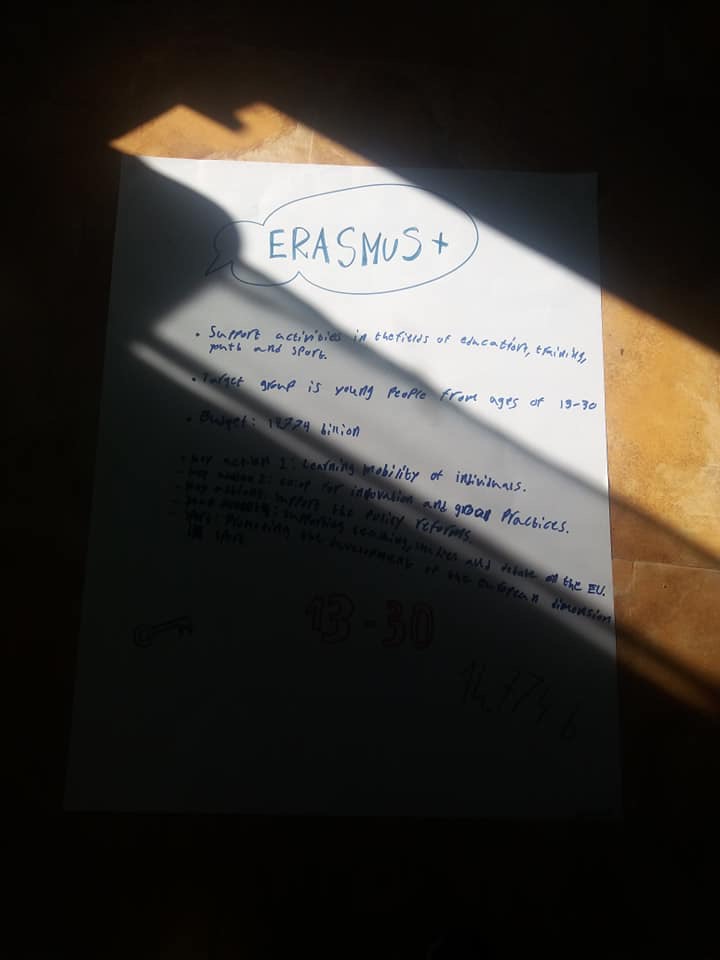 ERASMUS +
• Support activities in the fields of education, training,
youth and sport.
• Target group is young people from ages of 13-30
• Budget: 14.774 billion
- key action 1: Learning mobility of individuals.
- key action 2: for innovation and good Practices.
- key action 3: support the policy reforms
- supporting learning, and debate on the EU.
- Sport: Promoting the development of the European dimension
in sport
13-30
14,774 b